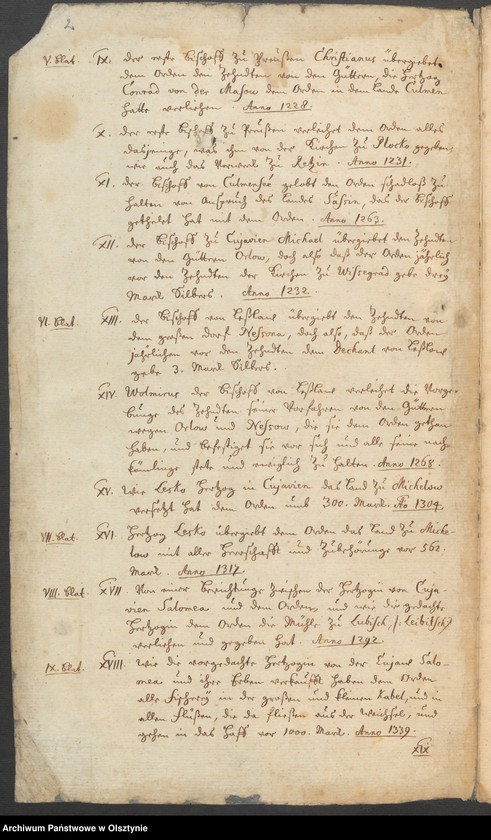 2
V. Blat. IX. der erste Bischoff zu Preußen Christianus übergiebet
dem Orden den Zehndten von den Güttern, die Hertzog
Conrad von der Masow dem Orden in dem Lande Culmen
hatte verliehen. Anno 1228.
X. der erste Bischoff zu Preußen verleihet dem Orden alles
dasjenige, was ihm von der Kirchen zu Plocko gegeben,
wie auch das Vorwerk zu Retzin. Anno 1231.
XI. der Bischoff von Culmensee gelobt den Orden schadloß zu
halten von Anspruch des Landes Sassin, das der Bischoff
getheilet hat mit dem Orden. Anno 1263.
XII. der Bischoff zu Cujavien Michael übergiebet den Zehndten
von den Güttern Orlow, doch also daß der Orden jährlich
vor den Zehndten der Kirchen zu Wissegrad gebe drey
Marck Silbers. Anno 1232.
VI. Blat. XIII. der Bischoff von Leßlaw übergiebt den Zehndten von
dem großen dorf Nessona, doch also, daß der Orden
jährlichen vor den Zehndten dem Dechant von Leßlaw
gebe 3. Marck Silbers.
XIV. Wolmirus der Bischoff von Leßlaw verleihet die Vorge-
bunge des Zehndten seiner Vorfahren von den Güttern
wegen Orlow und Nessow, die sie dem Orden gethan
haben, und befestiget sie vor sich und alle seine nach-
kömlinge stete und ewiglich zu halten. Anno 1268.
XV. Wie Lesko Hertzog in Cujavien das Land zu Michelow
versetzt hat dem Orden umb 300. Marck. Ao 1304.
VII. Blat. XVI. Hertzog Lesko übergiebet dem Orden das Land zu Miche-
low mit aller Herrschafft und Zubehörunge vor 562.
Marck. Anno 1317.
VIII. Blat. XVII. Von einer berichtunge zwischen der Hertzogin von Cuja-
vien Salomea und dem Orden, und wie die gedachte
Hertzogin dem Orden die Mühle zu Lubisch, /: Leibitsch :/
verliehen und gegeben hat. Anno 1292.
IX. Blat. XVIII. Wie die vorgedachte Hertzogin von der Cujaw Salo-
mea und ihre Erben verkaufft haben dem Orden
alle Fischerey in der großen und kleinen Kabel, und in
allen Flüßen, die da fließen aus der Weichsel, und
gehen in das Haff vor 1000. Marck. Anno 1339.
XIX
Archiwum Państwowe w Olsztynie